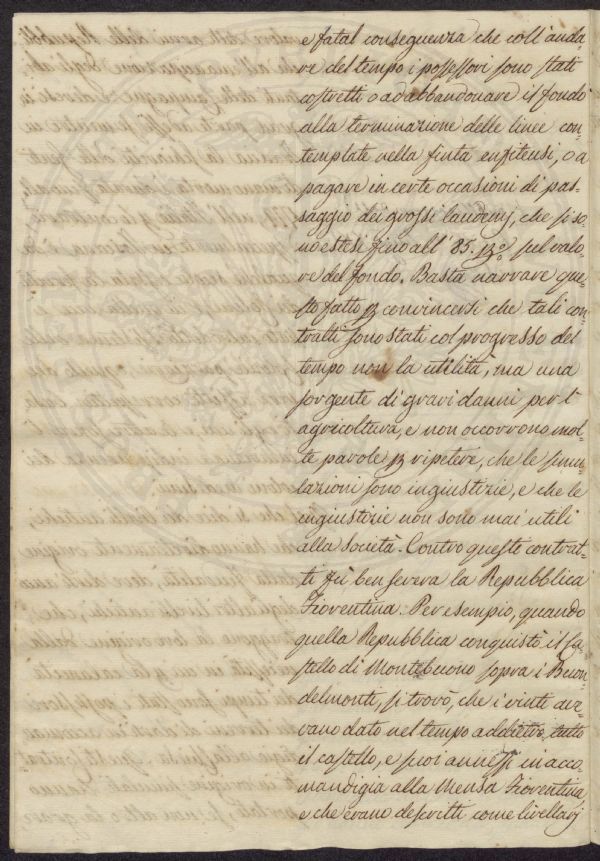 e fatal conseguenza che coll'anda=
re del tempo i possessori sono stati
costretti o ad abbandonare il fondo
alla terminazione delle linee con=
template nella finta enfitensi, o a
pagare in certe occasioni di pas=
saggio dei grossi laudemj, che si so=
no estesi fino all' 85. p%o sul valo=
re del fondo. Basta narrare que=
sto fatto p convincersi che tali con=
tratti sono stati col progresso del
tempo non la utilità, ma una
sorgente di gravi danni per l'
agricoltura, e non occorrono mol=
te parole p ripetere, che le simu=
lazioni sono ingiustizie, e che le
ingiustizie non sono mai utili
alla Società. Contro questi contrat=
ti fù ben severa la Repubblica
Fiorentina. Per esempio, quando
quella Repubblica conquistò il Ca=
stello di Montebuono sopra i Buon=
delmonti, si trovò, che i vinti ave=
vano dato nel tempo addietro tutto
il castello, e suoi annessi in acco=
mandigia alla Mensa Fiorentina
e che erano descritti come livellarj